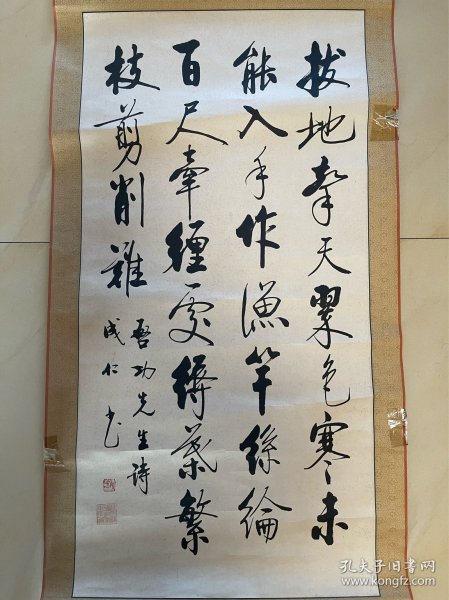 拔地擎天翠色寒未
能入手作渔竿丝纶
百尺牵缠处缚叶繁
枝剪削难
启功先生诗
成仁书
孔夫子旧书网
www.kongfz.com